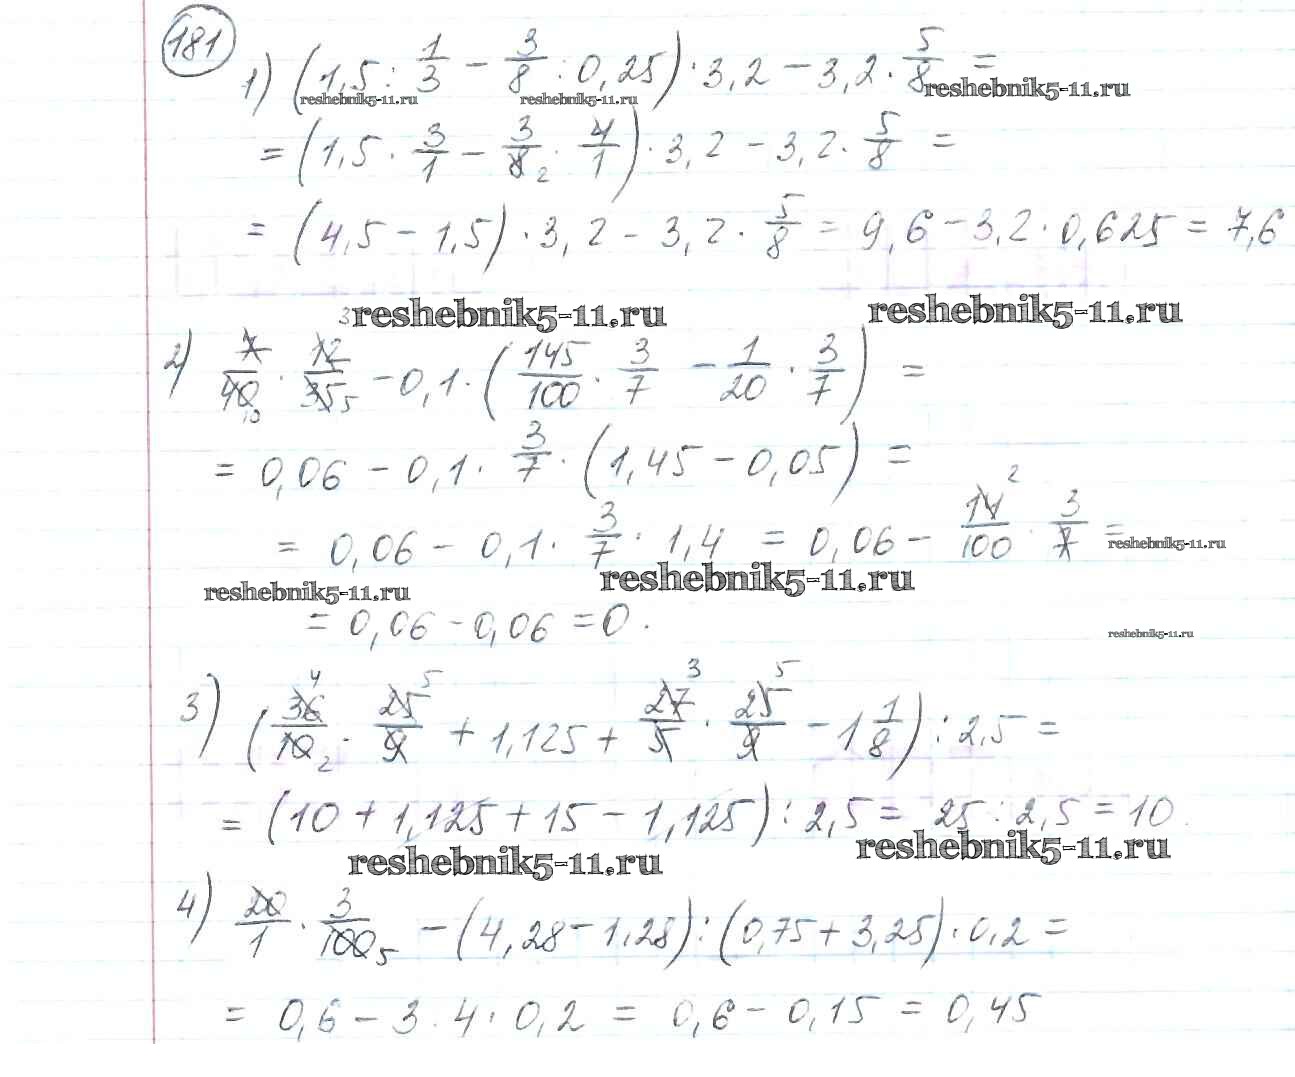 181
1) (1,5 : 1/3 − 3/8 : 0,25) · 3,2 − 3,2 · 5/8 =
reshebnik5-11.ru reshebnik5-11.ru reshebnik5-11.ru
= (1,5 · 3/1 − 3/8 2 · 4/1) · 3,2 − 3,2 · 5/8 =
= (4,5 − 1,5) · 3,2 − 3,2 · 5/8 = 9,6 − 3,2 · 0,625 = 7,6
reshebnik5-11.ru reshebnik5-11.ru
2) 7/40 10 · 12 3/35 5 − 0,1 · (145/100 · 3/7 − 1/20 · 3/7) =
= 0,06 − 0,1 · 3/7 · (1,45 − 0,05) =
= 0,06 − 0,1 · 3/7 · 1,4 = 0,06 − 14 2/100 · 3/7 =
reshebnik5-11.ru
reshebnik5-11.ru reshebnik5-11.ru
= 0,06 − 0,06 = 0.
reshebnik5-11.ru
3) (36 4/10 2 · 25 5/9 + 1,125 + 27 3/5 · 25 5/9 − 1 1/8) : 2,5 =
= (10 + 1,125 + 15 − 1,125) : 2,5 = 25 : 2,5 = 10.
reshebnik5-11.ru reshebnik5-11.ru
4) 20/1 · 3/100 5 − (4,28 − 1,28) : (0,75 + 3,25) · 0,2 =
= 0,6 − 3 · 4 · 0,2 = 0,6 − 0,15 = 0,45